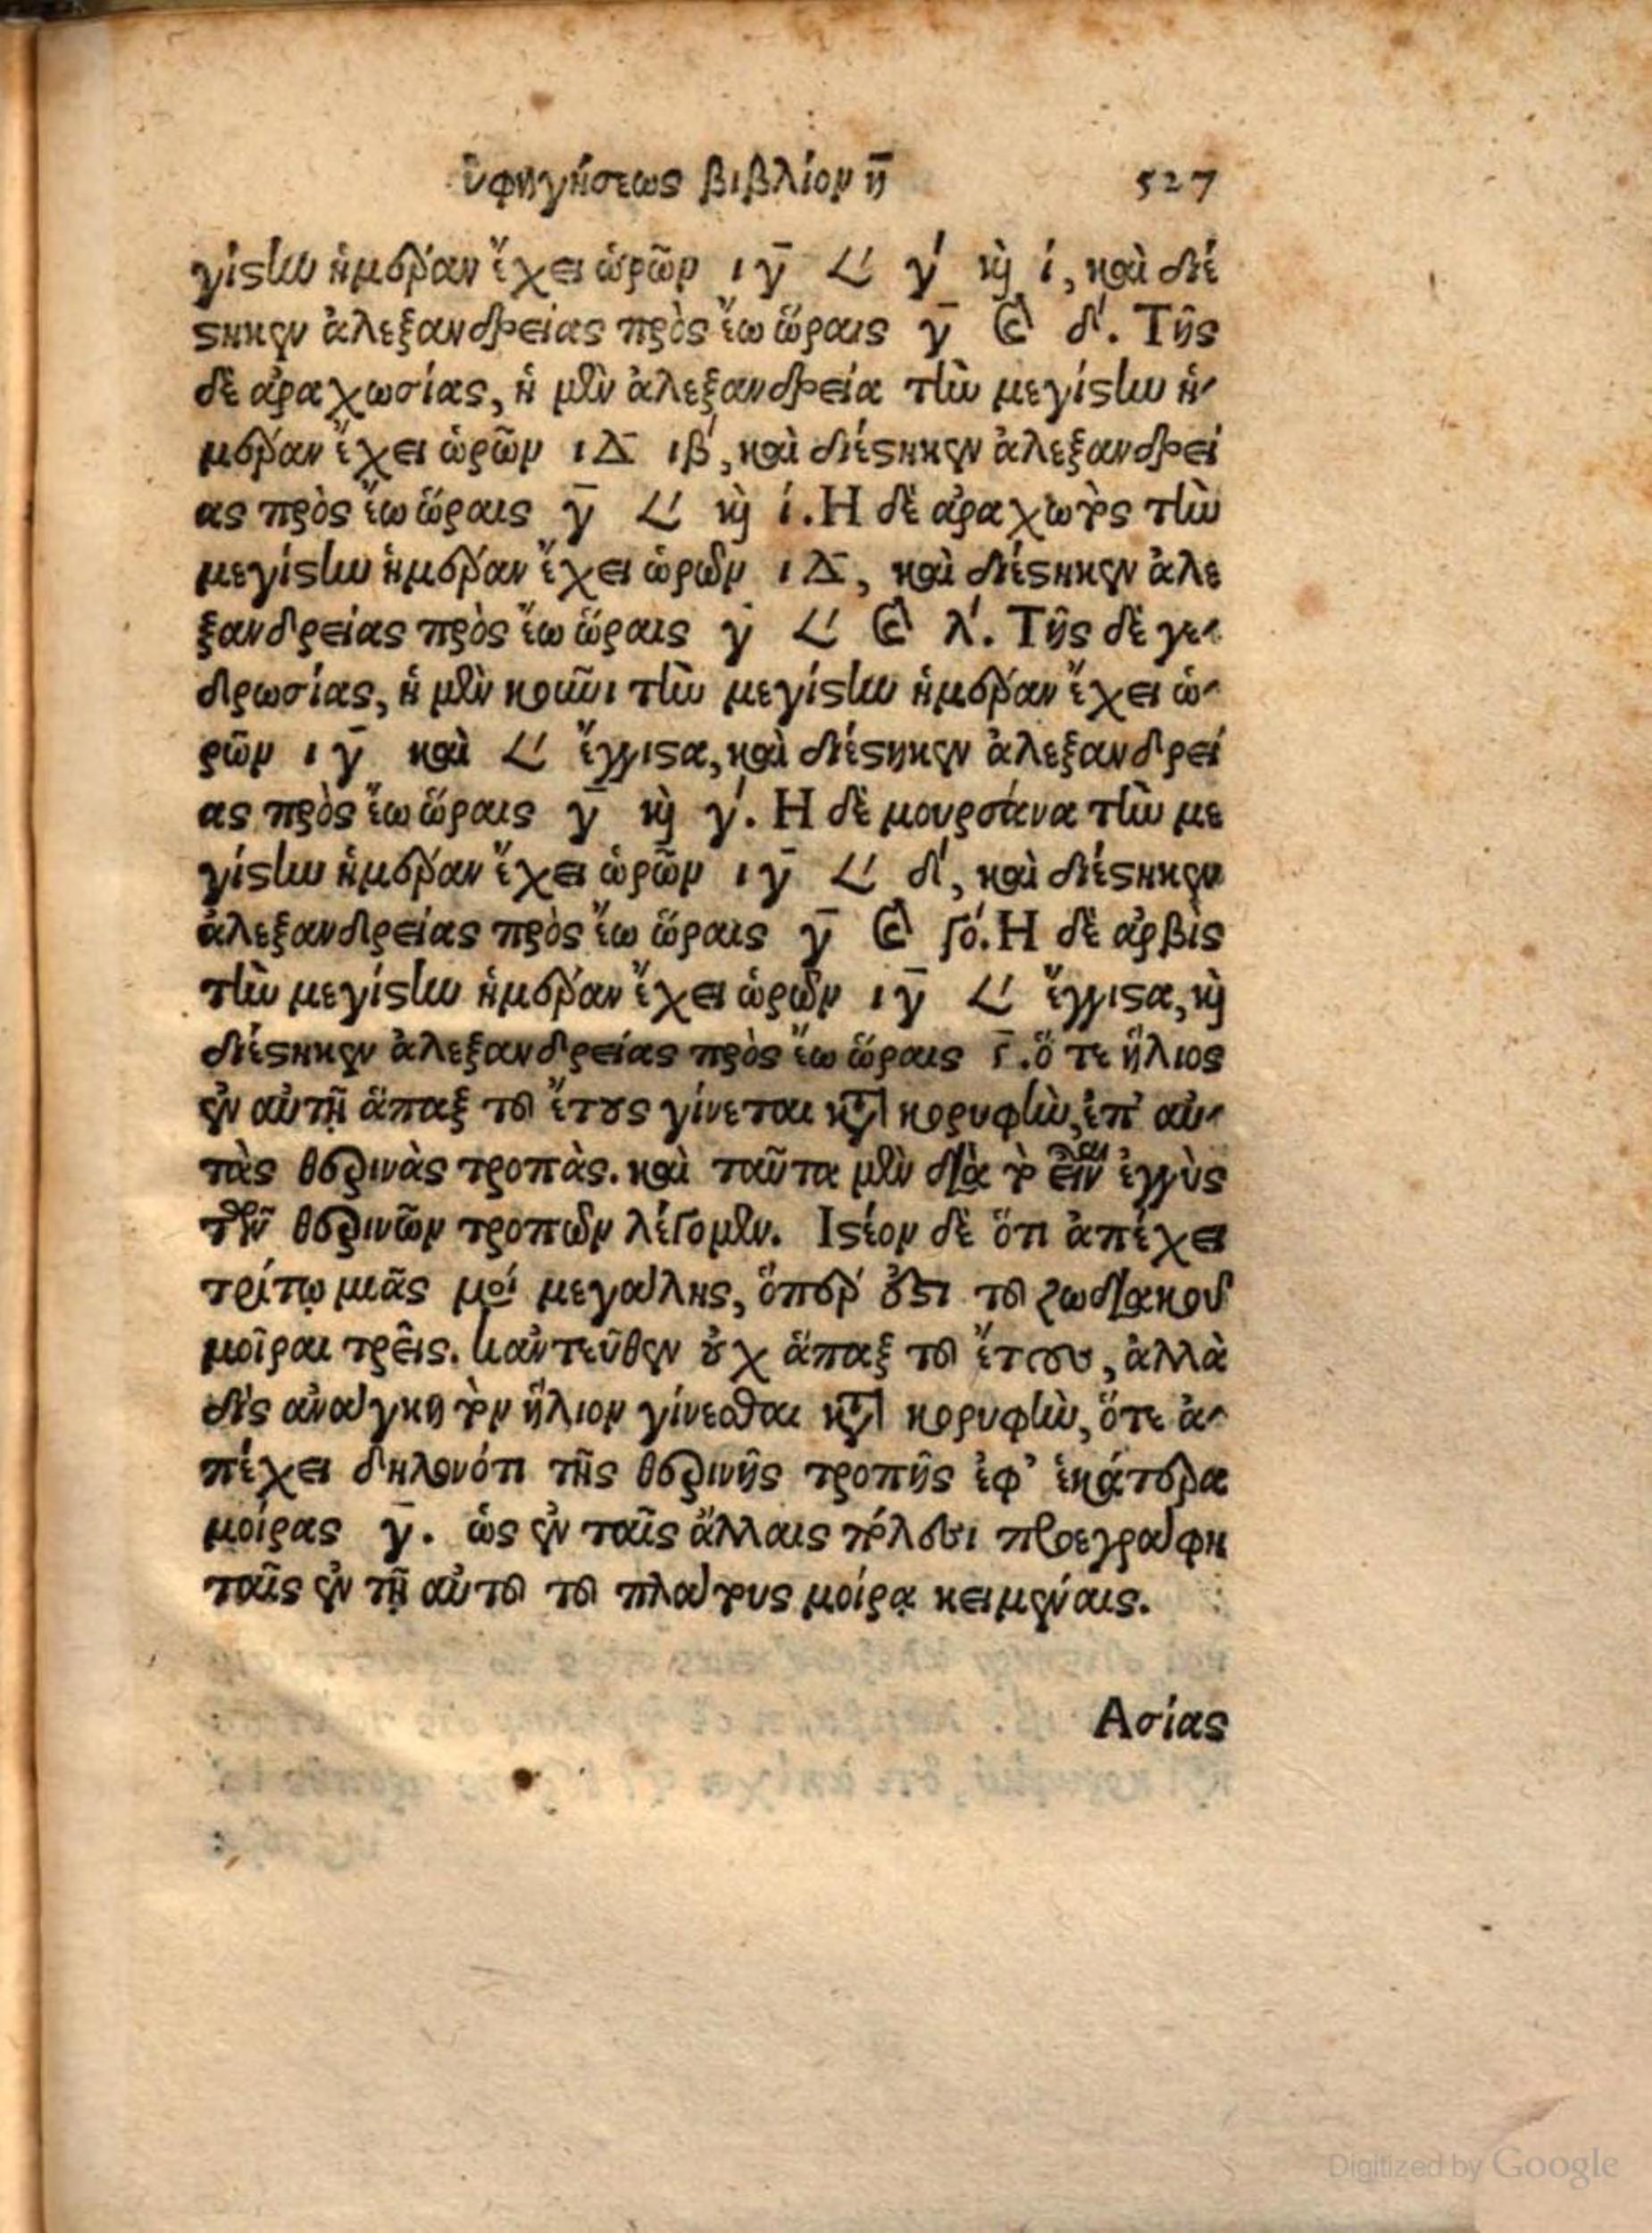 ὑφηγήσεως βιβλίον η̄ 527
γίστην ἡμέραν ἔχει ὡρῶν ιγ̄ ∠ʹ γʹ καὶ ίʹ, καὶ διέ
στηκεν ἀλεξανδρείας πρὸς ἕω ὥραις γ̄ καὶ δʹ. Τῆς
δὲ ἀραχωσίας, ἡ μὲν ἀλεξανδρεία τὴν μεγίστην ἡ-
μέραν ἔχει ὡρῶν ιΔ̄ ιβʹ, καὶ διέστηκεν ἀλεξανδρεί
ας πρὸς ἕω ὥραις γ̄ ∠ʹ καὶ ί. Η δὲ ἀραχωτὸς τὴν
μεγίστην ἡμέραν ἔχει ὡρῶν ιΔ̄, καὶ διέστηκεν ἀλε
ξανδρείας πρὸς ἕω ὥραις γ̄ ∠ʹ καὶ λʹ. Τῆς δὲ γε-
δρωσίας, ἡ μὲν κοῦνι τὴν μεγίστην ἡμέραν ἔχει ὡ-
ρῶν ιγ̄ καὶ ∠ʹ ἔγγιστα, καὶ διέστηκεν ἀλεξανδρεί
ας πρὸς ἕω ὥραις γ̄ καὶ γʹ. Η δὲ μουρσάνα τὴν με
γίστην ἡμέραν ἔχει ὡρῶν ιγ̄ ∠ʹ δʹ, καὶ διέστηκεν
ἀλεξανδρείας πρὸς ἕω ὥραις γ̄ καὶ γό. Η δὲ ἀρβὶς
τὴν μεγίστην ἡμέραν ἔχει ὡρῶν ιγ̄ ∠ʹ ἔγγιστα, καὶ
διέστηκεν ἀλεξανδρείας πρὸς ἕω ὥραις γ̄. ὅ τε ἥλιος
ἐν αὐτῇ ἅπαξ τοῦ ἔτους γίνεται κατὰ κορυφὴν, ἐπ' αὐ-
τὰς θερινὰς τροπὰς. καὶ ταῦτα μὲν διὰ τὸ εἶναι ἐγγὺς
τῶν θερινῶν τροπῶν λέγομεν. Ιστέον δὲ ὅτι ἀπέχει
τρίτῳ μιᾶς μοί μεγάλης, ὅπερ ἐστὶ τοῦ ζωδιακοῦ
μοῖραι τρεῖς. κἀντεῦθεν οὐχ ἅπαξ τοῦ ἔτους, ἀλλὰ
δὶς ἀνάγκη τὸν ἥλιον γίνεσθαι κατὰ κορυφὴν, ὅτε ἀ-
πέχει δηλονότι τῆς θερινῆς τροπῆς ἐφ' ἑκάτερα
μοίρας γ̄. ὡς ἐν ταῖς ἄλλαις πόλεσι προεγράφη
ταῖς ἐν τῇ αὐτοῦ τοῦ πλάτους μοίρᾳ κειμέναις.
Ασίας
Digitized by Google